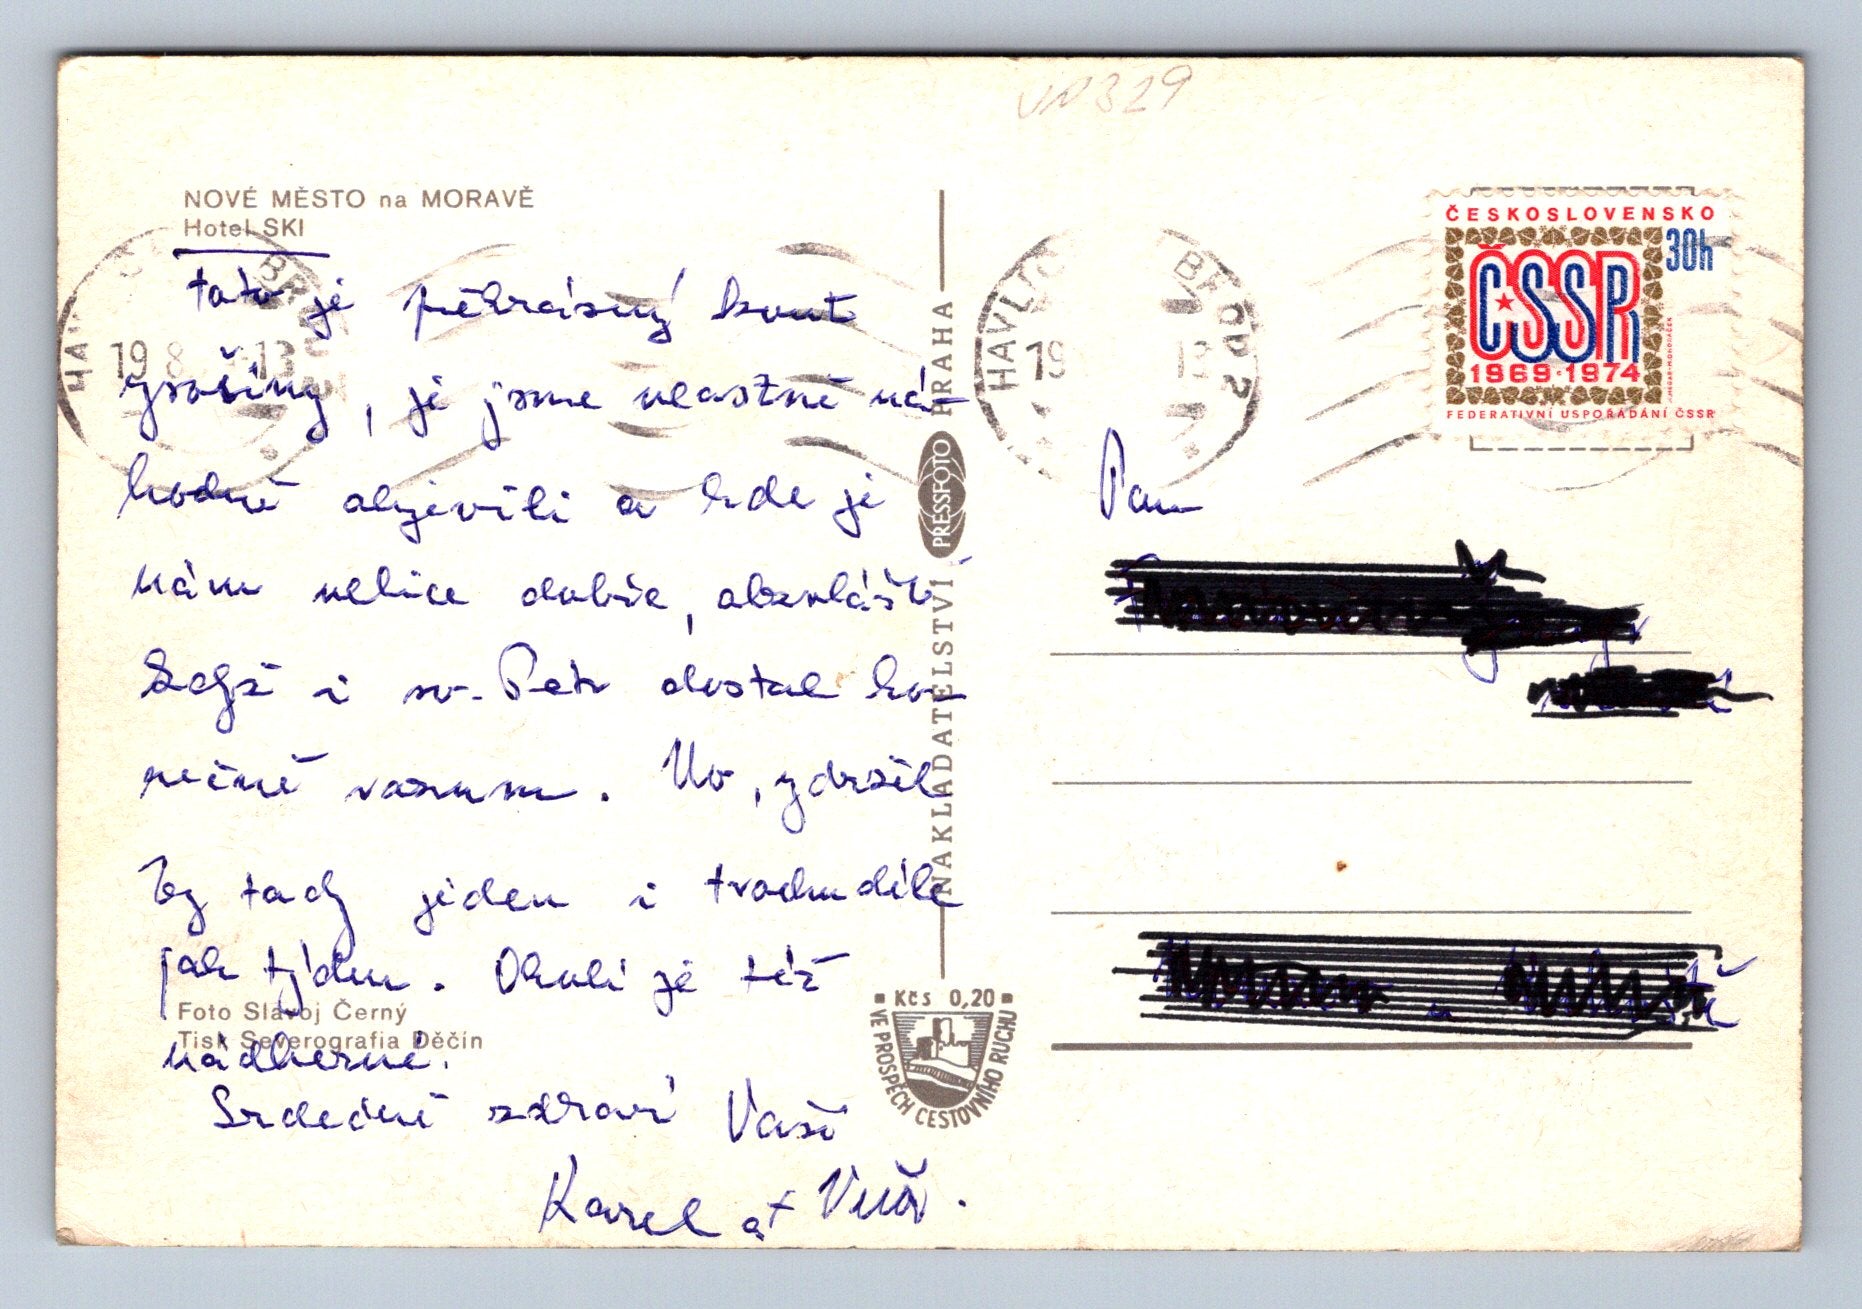 NOVÉ MĚSTO na MORAVĚ
Hotel SKI
toto je překrásný kout
, jž jsme vlastně ná-
hodně objevili a kde je
nám velice dobře, obzvláště
když i sv. Petr dostal ko-
nečně rozum. No, zdržel
by tady jeden i trochu déle
jak týden. Okolí je též
nádherné.
Srdečně zdraví Vaši
Karel a
Foto Slavoj Černý
Tisk Severografia Děčín
NAKLADATELSTVÍ PRESSFOTO PRAHA
Kčs 0,20
VE PROSPĚCH CESTOVNÍHO RUCHU
HAVLÍČ BROD 2
19
ČESKOSLOVENSKO
30h
ČSSR
1969·1974
FEDERATIVNÍ USPOŘÁDÁNÍ ČSSR
329
Pan